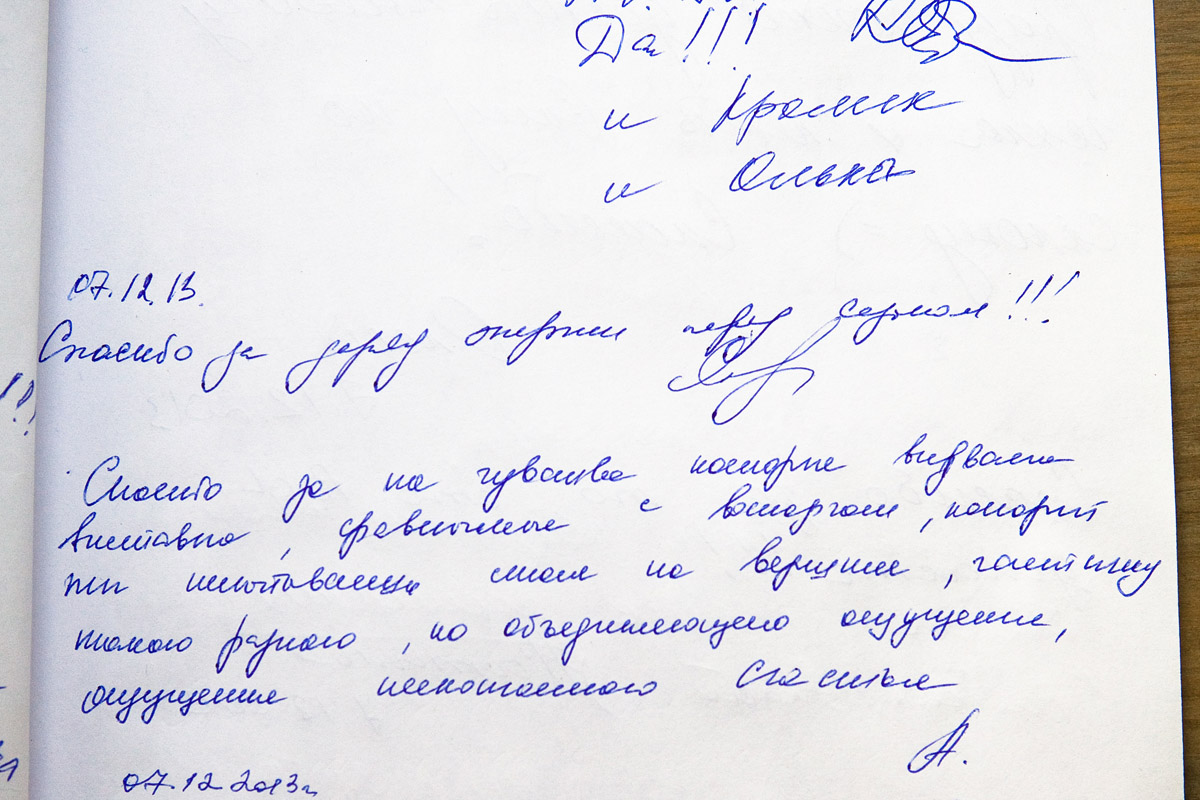 Да!!!
и Кролик
и Олька
07.12.13.
Спасибо за заряд энергии перед сезоном!!!
Спасибо за те чувства которые вызвала
выставка, сравнимые с восторгом, который
ты испытываешь стоя на вершине,
такого разного, но объединяющего ощущения,
ощущения нескончаемого счастья
А.
07.12 2013г